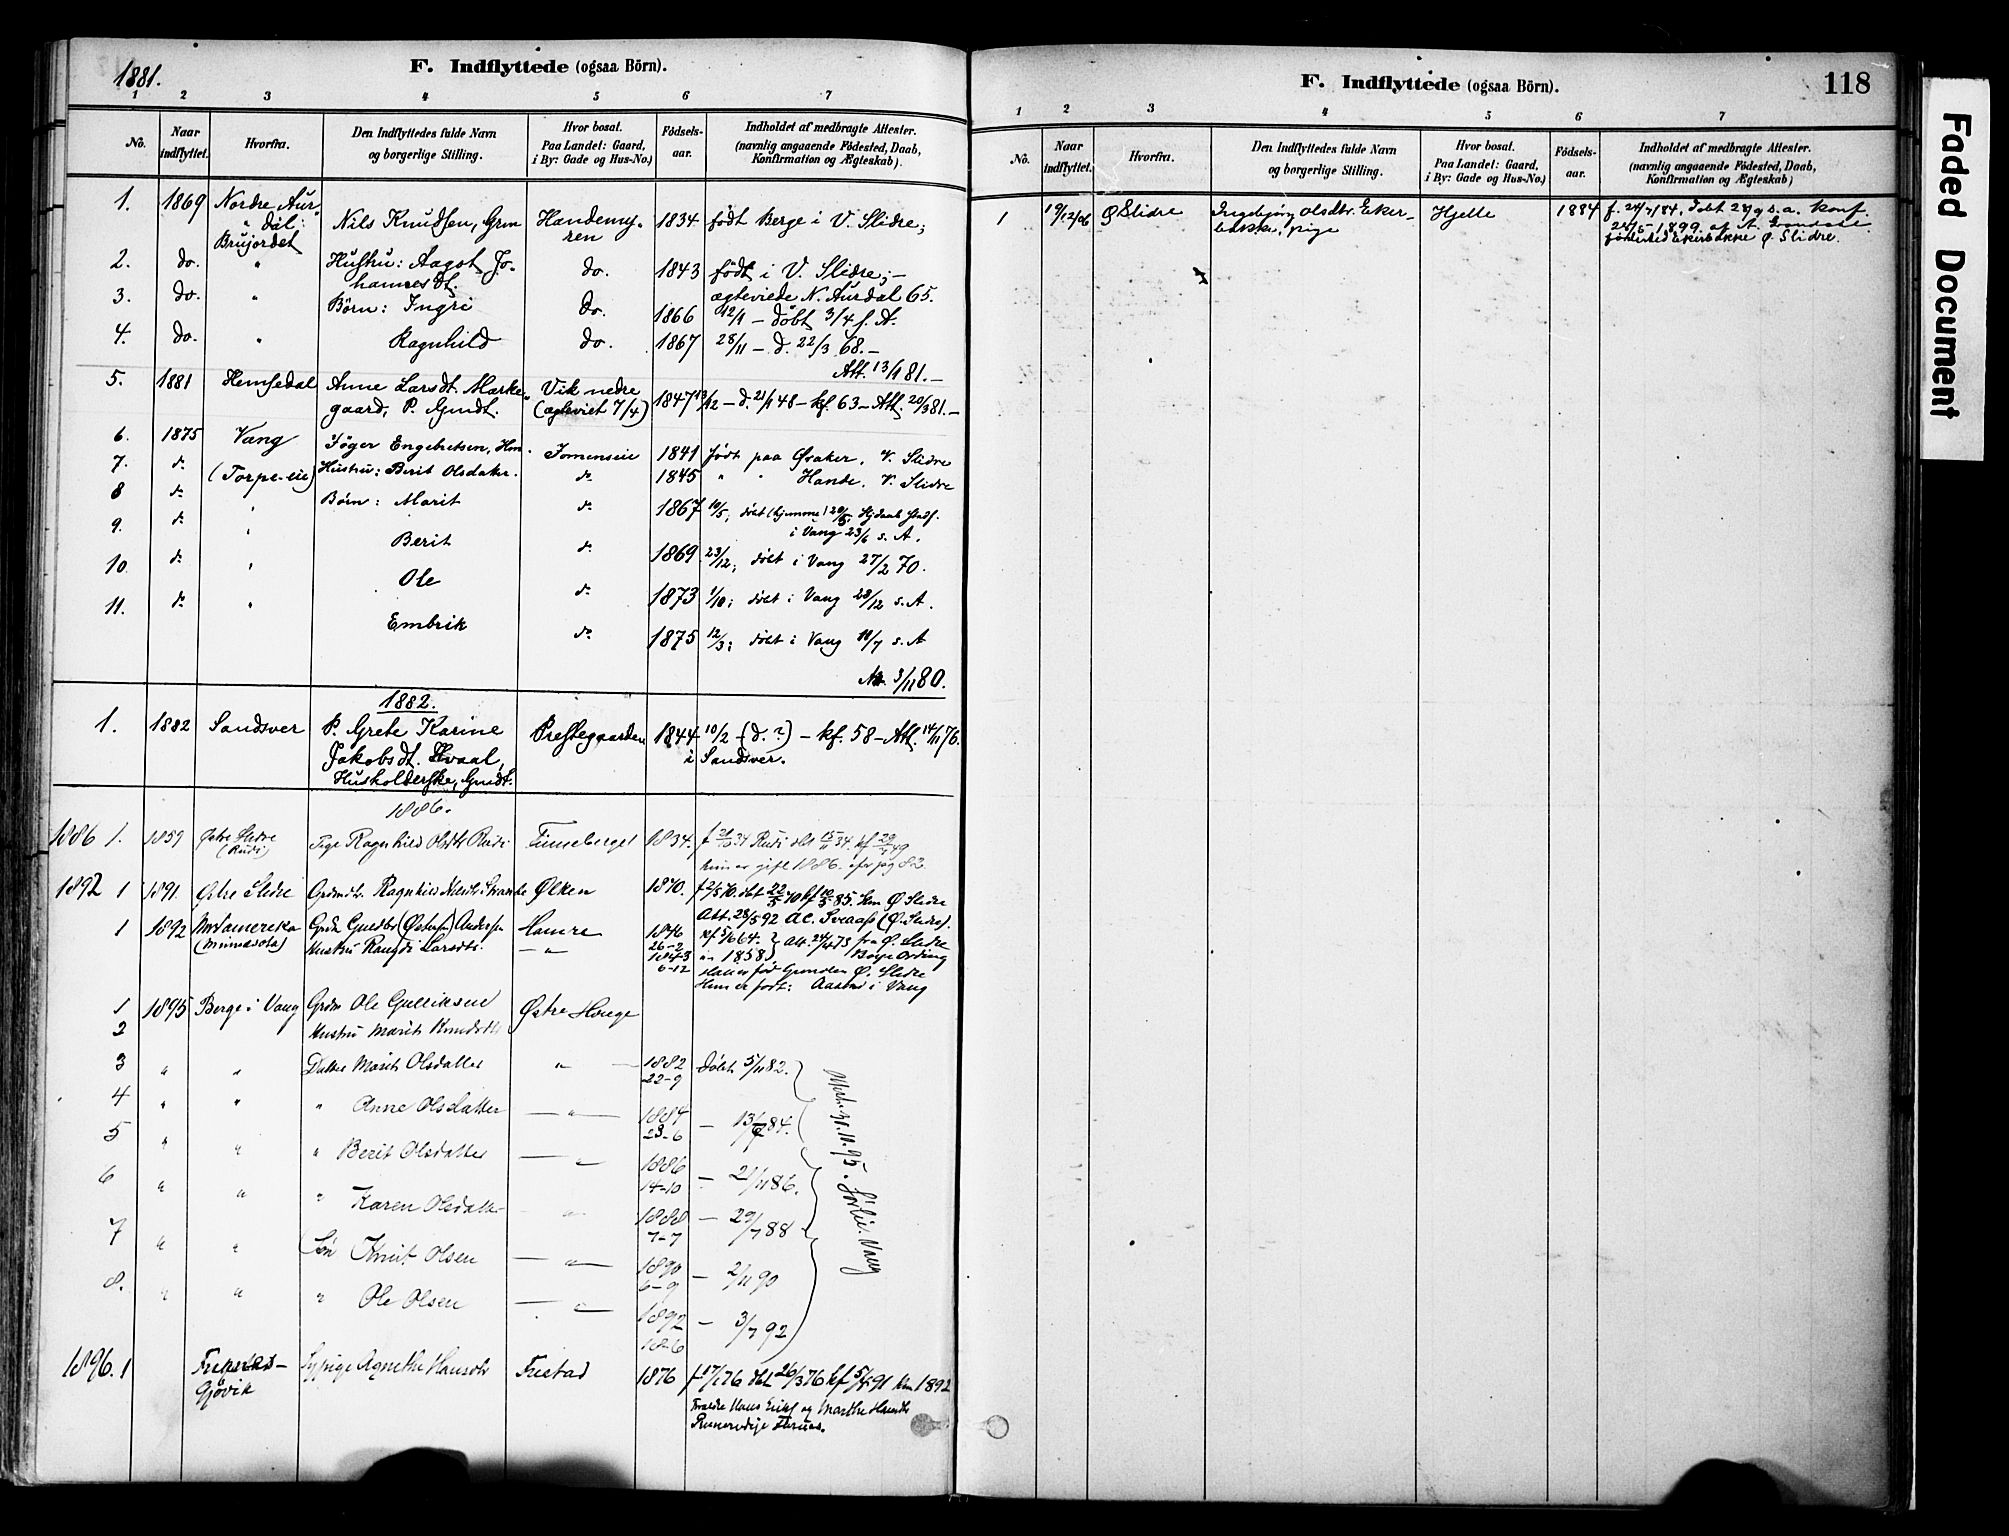 1881.
F. Indflyttede (ogsaa Börn).
1 2 3 4 5 6 7
No. Naar indflyttet. Hvorfra. Den Indflyttedes fulde Navn og borgerlige Stilling. Hvor bosat. Paa Landet: Gaard, i By: Gade og Hus-No.) Födsels-aar. Indholdet af medbragte Attester. (navnlig angaaende Födested, Daab, Konfirmation og Ægteskab).
1. 1869 Nordre Aurdal: Brujordet Nils Knudsen, Grm Handemyren 1834 født Berge i V. Slidre;
2. do. " Hustru: Aagot Johannesdt. do. 1843 født i V. Slidre; –
ægteviede N. Aurdal 65.
3. do. " Børn: Ingri do. 1866 12/1 – døbt 3/4 s. A.
4. do. " Ragnhild do. 1867 28/11 – d. 22/3 68. –
Att. 13/1 81. –
5. 1881 Hemsedal Anne Larsdt. Markegaard, P. Gmdt. Vik nedre (ægteviet 7/4) 1847 13/12 – d. 21/1 48 – kf. 63 – Att. 20/3 81. –
6. 1875 Vang Jøger Engebretsen, Hm. Jomenseie 1841 født paa Øvaker, V. Slidre
7. do (Torpe-eie) Hustru: Berit Olsdatr. do 1845 " " Hande, V. Slidre
8 do " Børn: Marit do 1867 10/5; døbt (hjemme) 20/5, Hjdaab stadf.
i Vang 23/6 s. A.
9. do " Berit do 1869 23/12; døbt i Vang 27/2 70.
10. do " Ole do 1873 1/10; døbt i Vang 28/12 s. A.
11. do " Embrik do 1875 12/3; døbt i Vang 18/7 s. A
Att. 3/11 80.
1882.
1. 1882 Sandsver P. Grete Karine Jakobsdt. Hvaal, Husholderske, Gmdt. Prestegaarden 1844 10/2 (d. ?) – kf. 58 – Att. 14/11 76.
i Sandsver.
1886.
1886 1. 1859 Østre Slidre (Rudi) Pige Ragnhild Olsdtr Rudi Finneberget 1834. f 31/10 34 Rudi dbt 15/11 34. kf 29/7 49
hun er gift 1886.
1892 1 1891. Østre Slidre Grdmdtr. Ragnhild Nilsdtr. Strande Ølken 1870. f 2/5 70. dbt 22/5 70 kf 10/5 85. Hm Ø Slidre
Att. 28/5 92 A.C. Svaass (Ø. Slidre).
1 1892 N. Amerika (Minnesota) Hamre 1846 26-2 kf 5/6 64. Att. 24/4 73 fra Ø. Slidre
Hustru Randi Larsdtr. — " — 1843 6-12 1858
Børge Ording
Han er fød Ø. Slidre
Hun er født: Aasen i Vang
1 1895 Berge i Vang Grdm Ole Gulliksen Østre Houge
2 Hustru Marit Knudsdtr
3 " " Datter Marit Olsdatter — " — 1882 22-9 døbt 5/11 82.
4 " " " Anne Olsdatter — " — 1884 23-6 – 13/7 84.
5 " " " Berit Olsdatter — " — 1886 14-10 – 21/11 86.
6 " " " Karen Olsdatter " 1888 7-7 – 29/7 88
7 " " Søn Knut Olsen — " — 1890 6-9 – 2/11 90
8. " " " Ole Olsen — " — 1892 – 3/7 92
1896. 1 Gjøvik Sypige Agnethe Hansdtr Frestad 1876 f 17/1 76 dbt 26/3 76 kf 5/4 91 1892
og Marthe Hansdtr
F. Indflyttede (ogsaa Börn). 118
1 2 3 4 5 6 7
No. Naar indflyttet. Hvorfra. Den Indflyttedes fulde Navn og borgerlige Stilling. Hvor bosat. Paa Landet: Gaard, i By: Gade og Hus-No.) Födsels-aar. Indholdet af medbragte Attester. (navnlig angaaende Födested, Daab, Konfirmation og Ægteskab)
1 19/12/06 Ø Slidre Ingebjørg Olsdtr. Ekerbakke, pige Hjelle 1884 f. 24/7 184. Døbt s. a. Konf.
28/5-1899 af A.
fødested Ekerbakke Ø. Slidre.
Faded Document